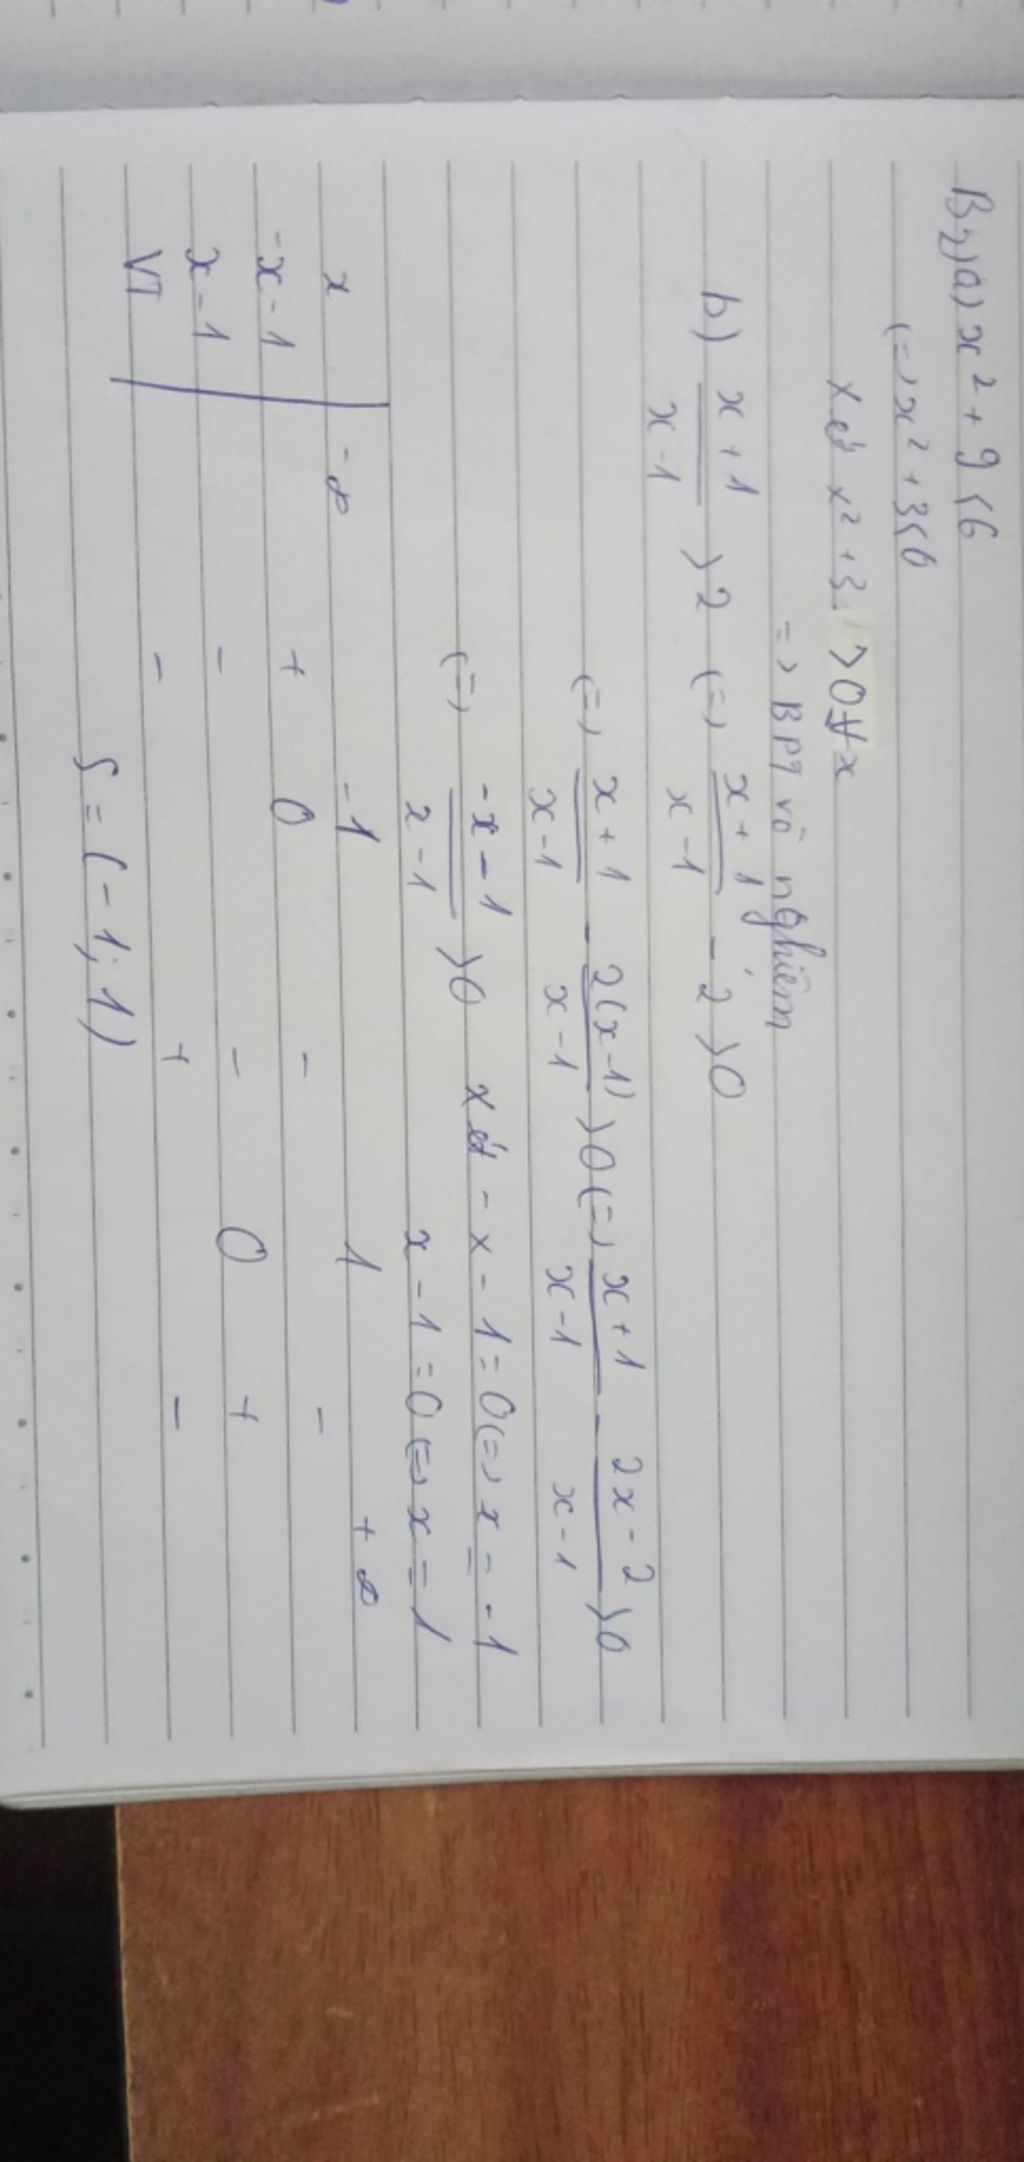 B2) a) x² + 9 < 6
(=) x² + 3 < 0
xét x² + 3 > 0 ∀ x
=> BPT vô nghiệm
b) \frac{x+1}{x-1} > 2 (=) \frac{x+1}{x-1} - 2 > 0
(=) \frac{x+1}{x-1} - \frac{2(x-1)}{x-1} > 0 (=) \frac{x+1}{x-1} - \frac{2x-2}{x-1} > 0
(=) \frac{-x-1}{x-1} > 0 xét - x - 1 = 0 (=) x = -1
x - 1 = 0 (=) x = 1
x | -∞ -1 1 +∞
-x-1 | + 0 - -
x-1 | - - 0 +
VT | - + -
S = (-1; 1)